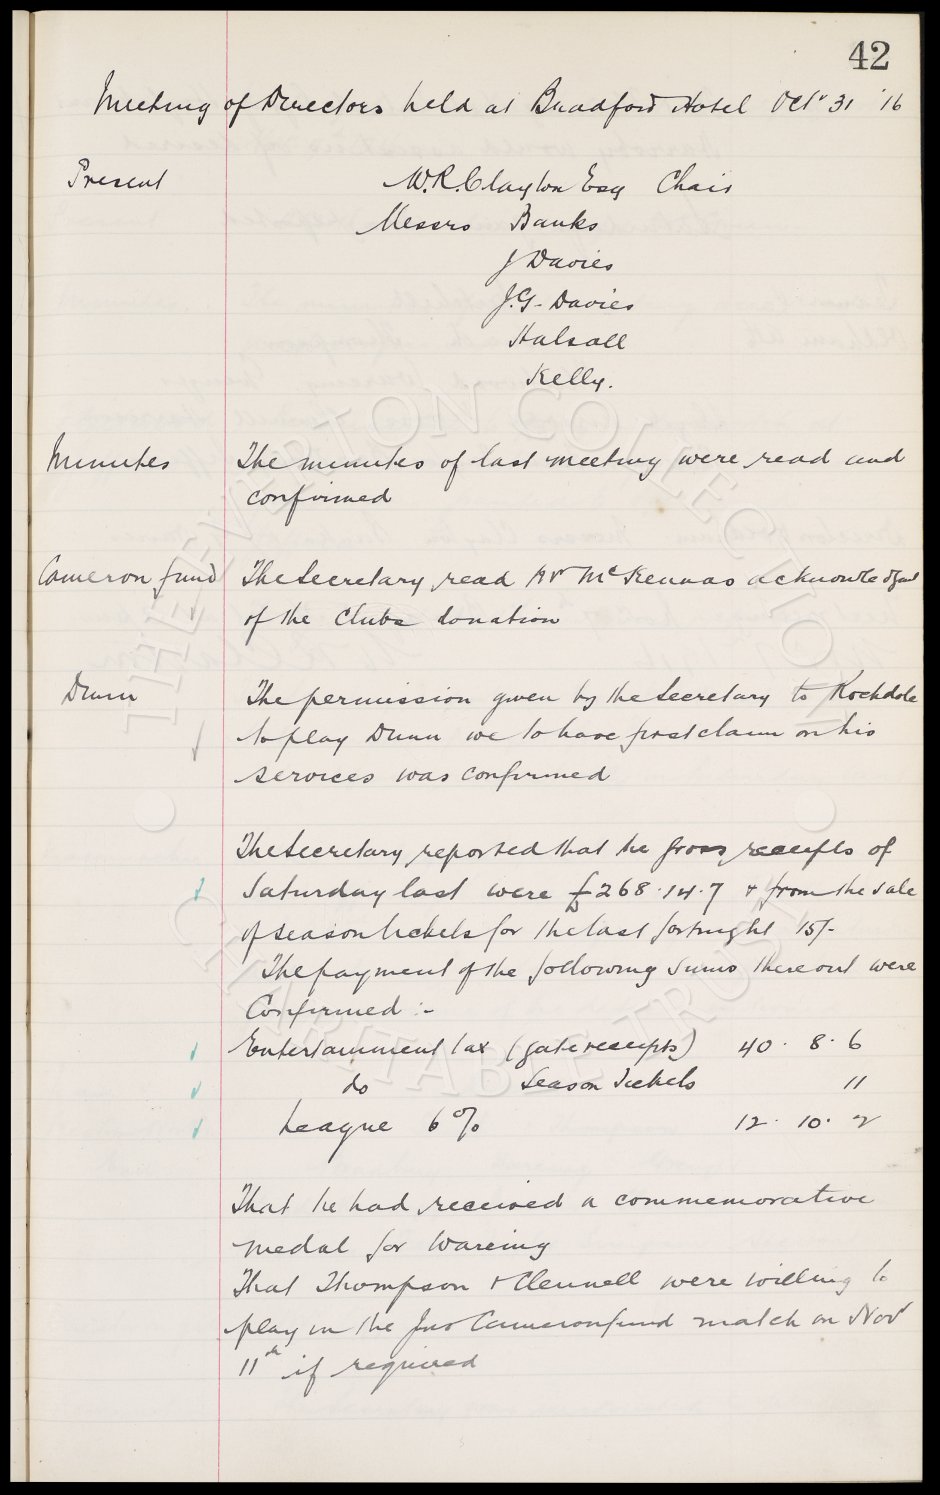 42
Meeting of Directors held at Bradford Hotel Octr 31 '16
Present W.R. Clayton Esq Chair
Messrs Banks
J Davies
J.G. Davies
Halsall
Kelly.
Minutes The minutes of last meeting were read and
confirmed
Cameron fund The Secretary read Mr McKennas acknowledgmt
of the Clubs donation
Dunn The permission given by the Secretary to Rochdale
to play Dunn we to have first claim on his
services was confirmed
The Secretary reported that the gross receipts of
Saturday last were £268.14.7 & from the sale
of season tickets for the last fortnight 15/-
The payment of the following sums thereout were
Confirmed :-
Entertainment tax (gate receipts) 40. 8. 6
do Season Tickets 11
League 6% 12. 10. 2
That he had received a commemorative
medal for Wareing
That Thompson & Clennell were willing to
play in the Jno Cameron fund match on Nov
11th if required
THE EVERTON COLLECTION
CHARITABLE TRUST